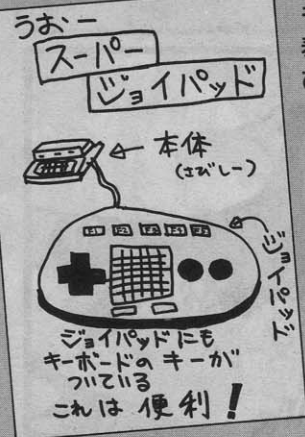 うおー
スーパー
ジョイパッド
本体
(さびしー)
F1 F2 F3 F4 F5
ジョイパッド
ジョイパッドにも
キーボードのキーが
ついている
これは便利！